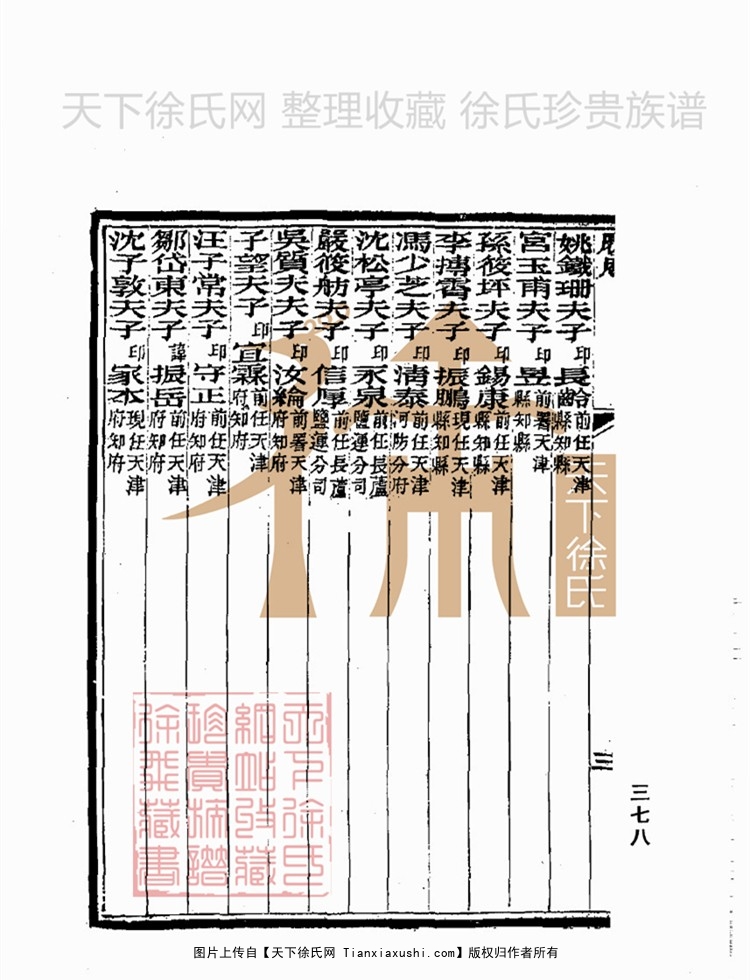 天下徐氏网 整理收藏 徐氏珍贵族谱
姚鐵珊夫子印長齡前任天津縣知縣
宮玉甫夫子印昱前署天津縣知縣
孫筱坪夫子印錫康前任天津縣知縣
李摶霄夫子印振鵬現任天津縣知縣
馮少芝夫子印清泰前任天津河防分府
沈松亭夫子印永泉前任長蘆鹽運分司
嚴筱舫夫子印信厚前任長蘆鹽運分司
吳質夫夫子印汝綸前署天津府知府
子望夫子印宜霖前任天津府知府
汪子常夫子印守正前任天津府知府
鄒岱東夫子諱振岳前任天津府知府
沈子敦夫子印家本現任天津府知府
三
三七八
天下徐氏
天下徐氏
網站收藏
珍貴族譜
徐氏藏書
图片上传自【天下徐氏网 Tianxiaxushi.com】版权归作者所有